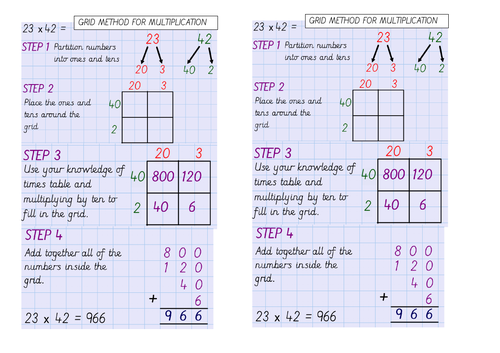 GRID METHOD FOR MULTIPLICATION
23 x 42 =
23 42
STEP 1 Partition numbers
into ones and tens
20 3 40 2
20 3
STEP 2
Place the ones and
tens around the
grid.
40
2
STEP 3
20 3
Use your knowledge of
times table and
multiplying by ten to
fill in the grid.
40 800 120
2 40 6
STEP 4
Add together all of the
numbers inside the
grid.
8 0 0
1 2 0
4 0
+ 6
9 6 6
23 x 42 = 966
GRID METHOD FOR MULTIPLICATION
23 x 42 =
23 42
STEP 1 Partition numbers
into ones and tens
20 3 40 2
20 3
STEP 2
Place the ones and
tens around the
grid.
40
2
STEP 3
20 3
Use your knowledge of
times table and
multiplying by ten to
fill in the grid.
40 800 120
2 40 6
STEP 4
Add together all of the
numbers inside the
grid.
8 0 0
1 2 0
4 0
+ 6
9 6 6
23 x 42 = 966